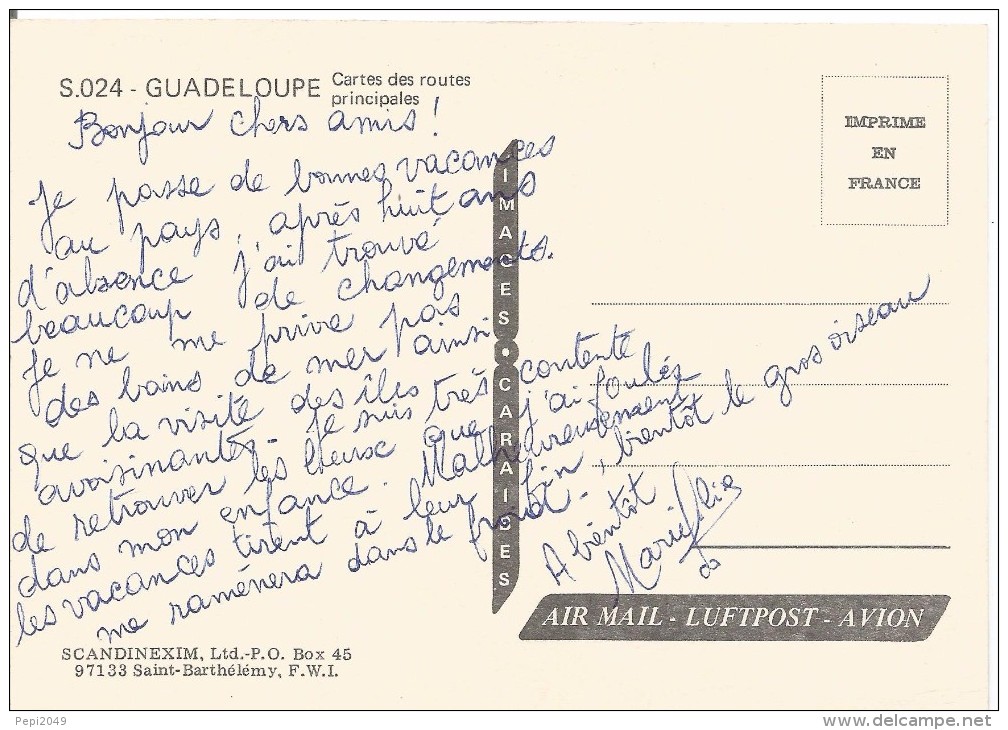 S.024 - GUADELOUPE Cartes des routes
principales
IMPRIME
EN
FRANCE
Bonjour chers amis !
Je passe de bonnes vacances
au pays, après huit ans
d'absence j'ai trouvé
beaucoup de changements.
Je ne me prive pas
des bains de mer ainsi
que la visite des îles
avoisinantes. Je suis très contente
de retrouver les lieux que j'ai foulés
dans mon enfance. Malheureusement
les vacances tirent à leur fin, bientôt le gros oiseau
me raménera dans le froid.
A bientôt
IMAGES • CARAIBES
AIR MAIL - LUFTPOST - AVION
SCANDINEXIM, Ltd.-P.O. Box 45
97133 Saint-Barthélémy, F.W.I.
Pepi2049
delcampe.net